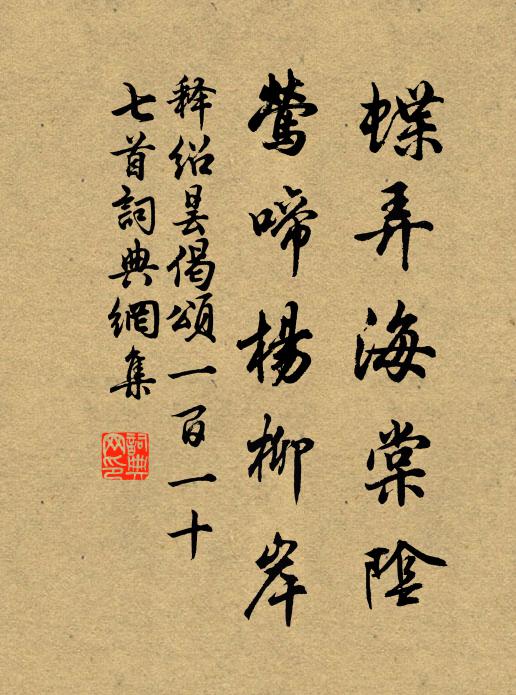 蝶弄海棠陰
鶯啼楊柳岸
释紹曇偈頌一百一十
七首詞典網集
詞典
网印